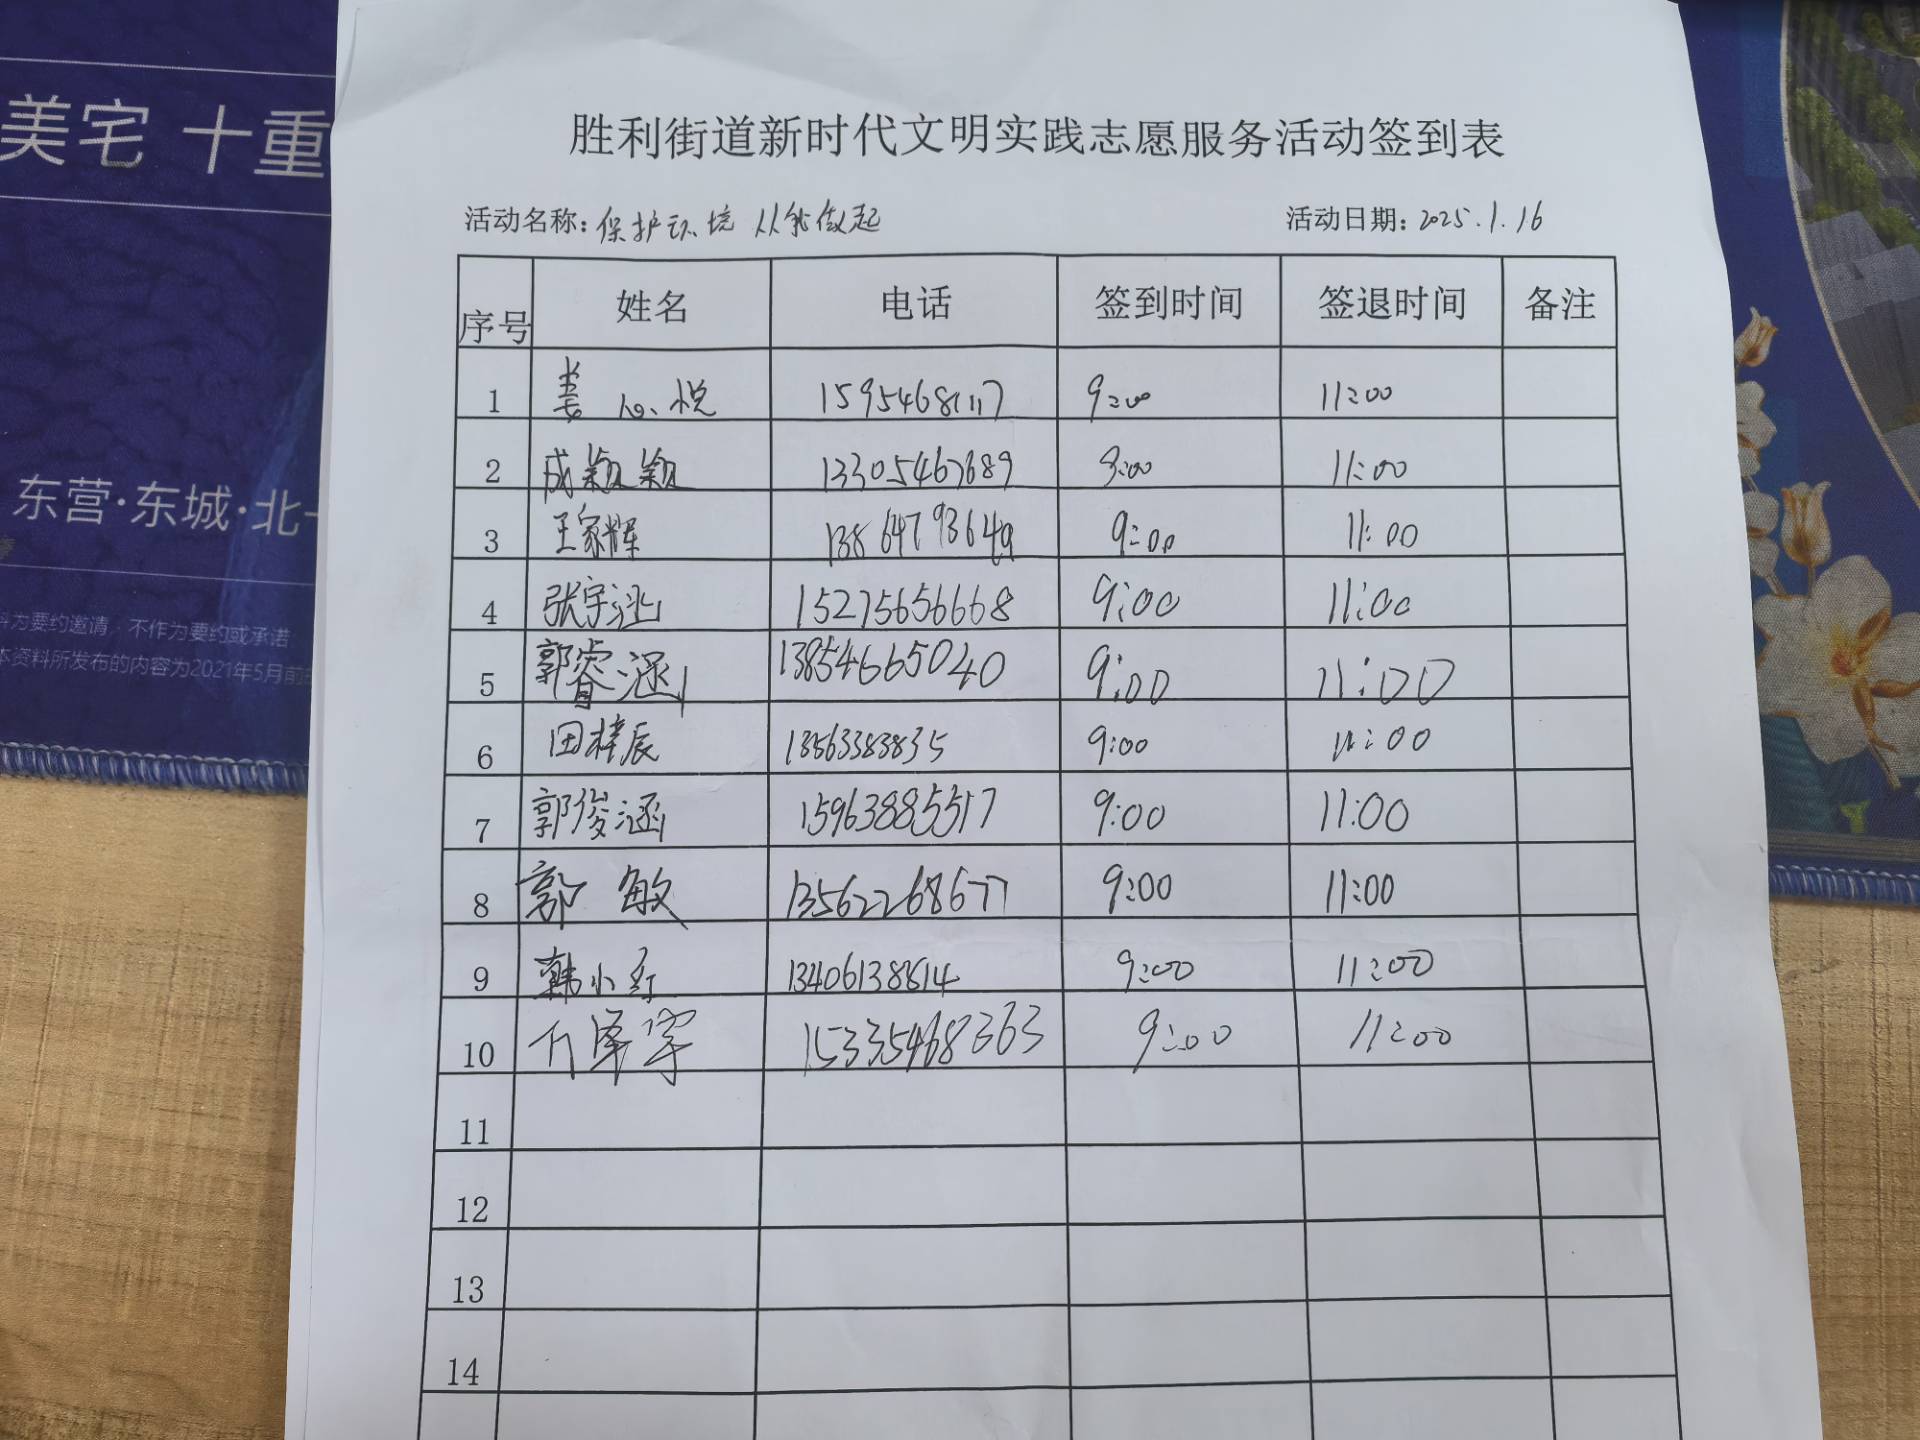 美宅 十重
东营·东城·北一
料为要约邀请,不作为要约或承诺
本资料所发布的内容为2021年5月前
胜利街道新时代文明实践志愿服务活动签到表
活动名称:保护环境 从我做起 活动日期:2025.1.16
序号 姓名 电话 签到时间 签退时间 备注
1 姜心悦 15954681117 9:00 11:00
2 成颖颖 13305467689 9:00 11:00
3 王家辉 13864793649 9:00 11:00
4 张宇涵 15275656668 9:00 11:00
5 郭睿涵 13854665040 9:00 11:00
6 田梓辰 13563383835 9:00 11:00
7 郭俊涵 15963885517 9:00 11:00
8 郭敏 13562268677 9:00 11:00
9 韩小红 13406138814 9:00 11:00
10 泽宇 15335468363 9:00 11:00
11
12
13
14